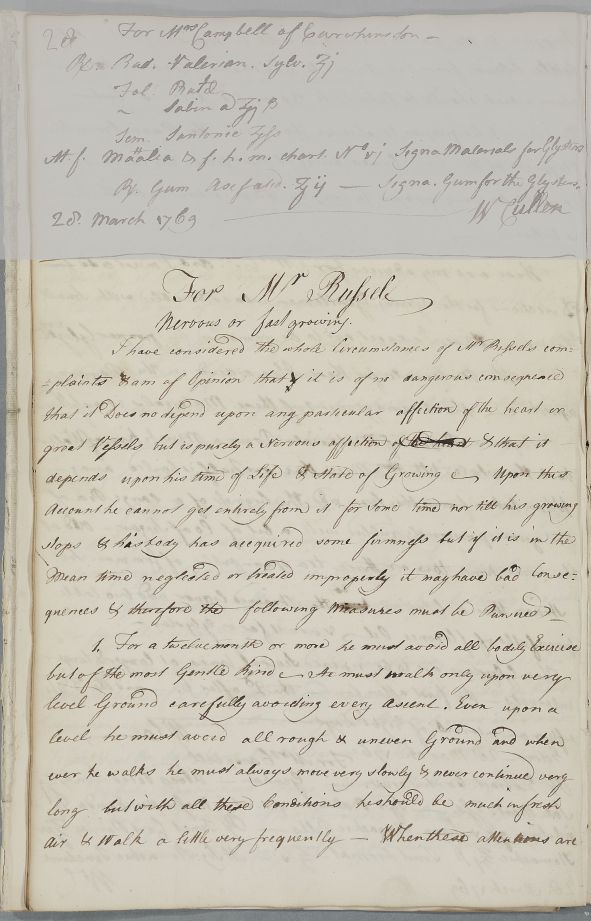 28 For Mrs Campbell of Carwhinsdon —
Rx Rad. Valerian. Sylv. ℥j
Fol: Rutæ
~ Sabin a ℥j ß
Sem. Santonic ℥ss
M. f. Maalia & f. h. m. chart. No vj Signa Materials for Glysters
Rx. Gum Asafœtid. ℥ij — Signa. Gum for the Glysters.
28. March 1769 W Cullen
For Mr Russele
Nervous or fast growing.
I have considered the whole Circumstances of Mr Russels com=
=plaints & am of Opinion that it is of no dangerous consequence
that it Does no depend upon any particular affection of the heart or
great Vessels but is purely a Nervous affection of the heart & that it
depends upon his time of Life & State of Growing Upon this
Account he cannot get entirely from it for some time nor till his growing
stops & his body has acquired some firmness but if it is in the
Mean time neglected or treated improperly it may have bad Conse=
quences & therefore the following Measures must be Pursued —
1. For a twelvemonth or more he must avoid all bodily Exercise
but of the most Gentle Kind He must walk only upon very
level Ground carefully avoiding every Ascent. Even upon a
level he must avoid all rough & uneven Ground and when
ever he walks he must always move very slowly & never continue very
long but with all these Conditions he should be much in fresh
air & Walk a little very frequently — When these attentions are